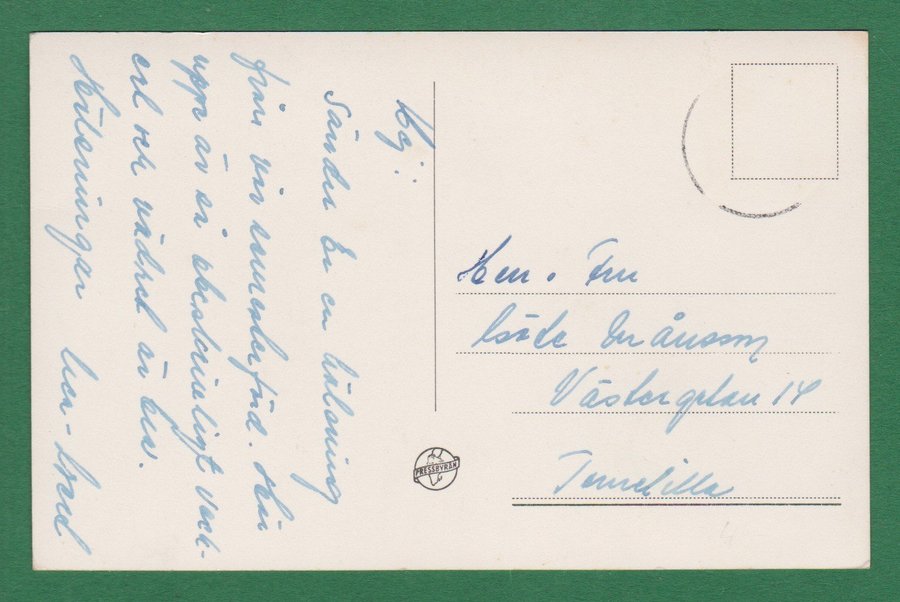 Hej!
Sänder Er en hälsning
från vår semesterfärd. Här
uppe är så obeskrivligt vack-
ert och vädret är bra.
Hälsningar
Herr o Fru
Månsson
Västergatan 14
Tomelilla
PRESSBYRÅN